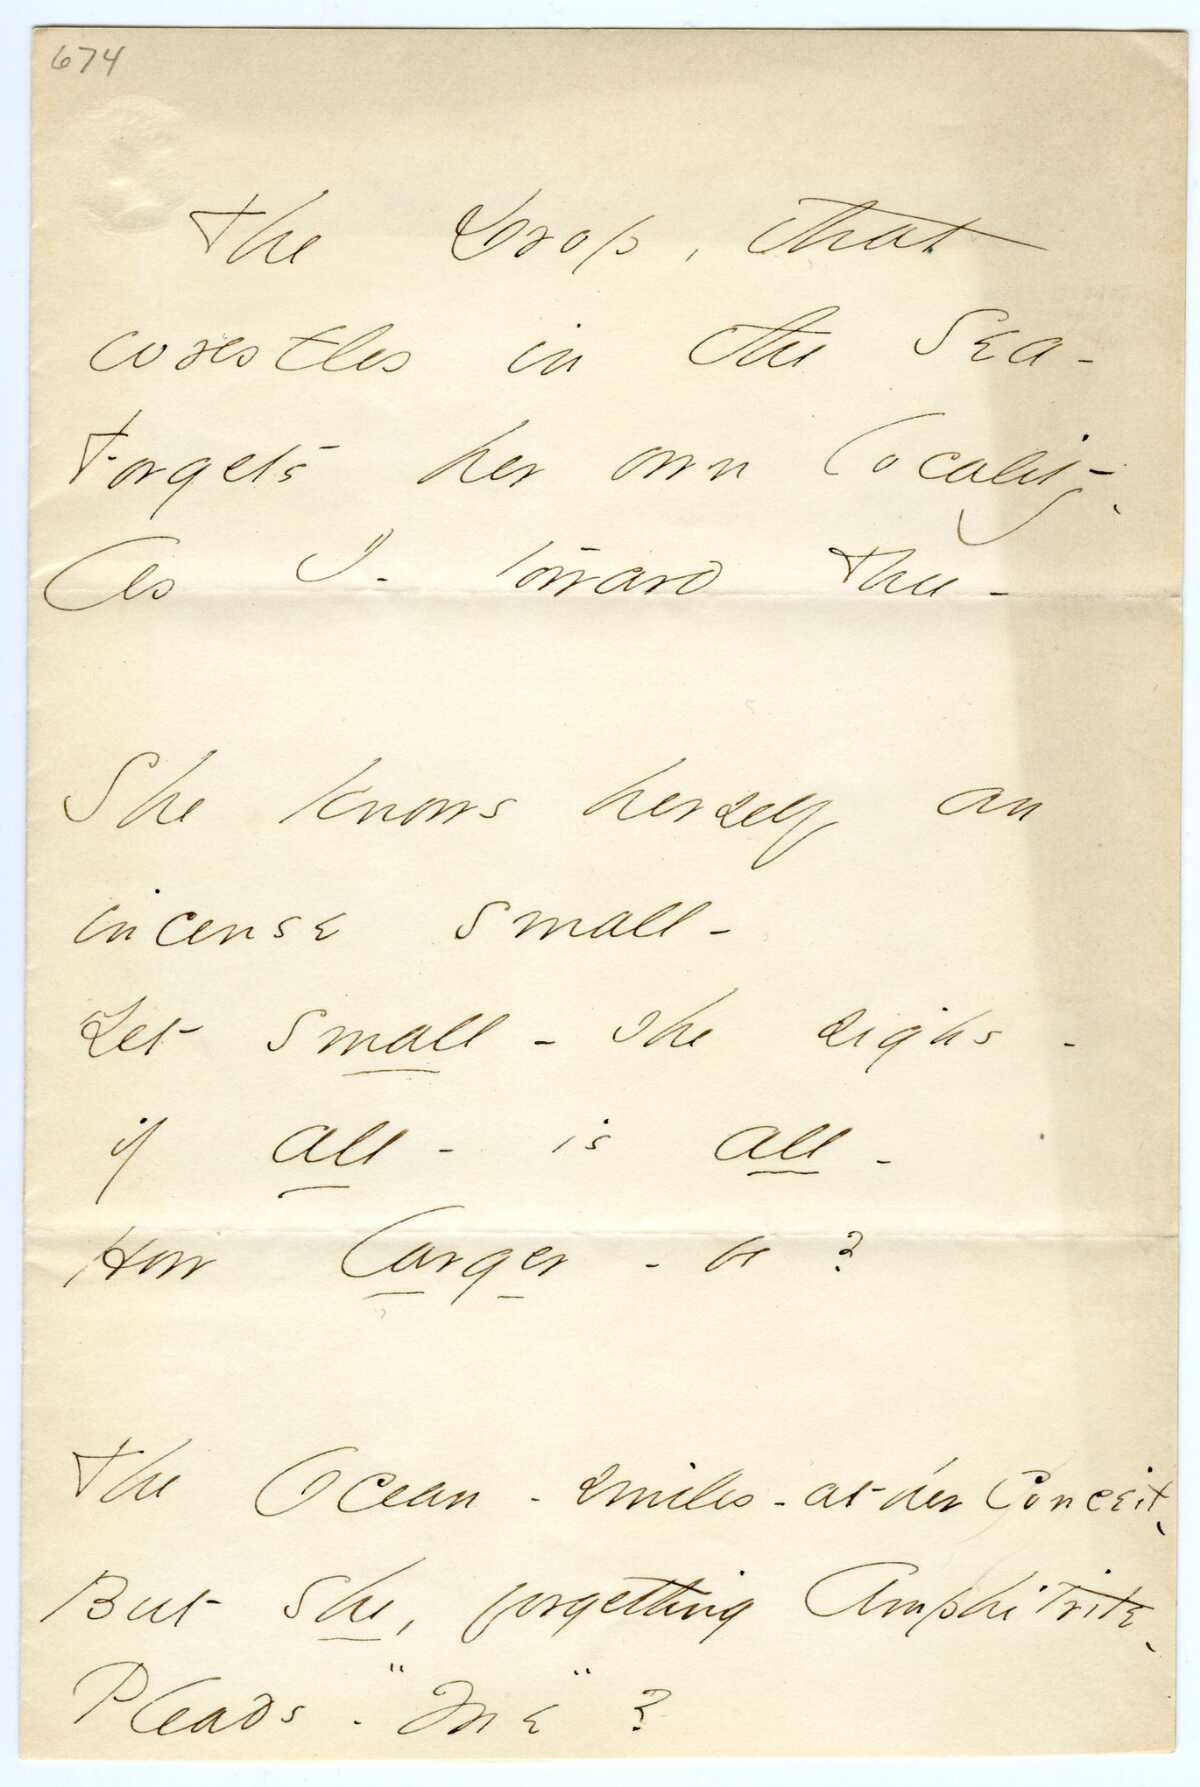 674
The Drop, that
wrestles in the Sea -
Forgets her own locality,
As I - toward Thee -
She knows herself an
incense small -
Yet small - she sighs -
if all - is all -
How larger - be?
The Ocean - smiles - at her Conceit,
But she, forgetting Amphitrite,
Pleads - "Me"?